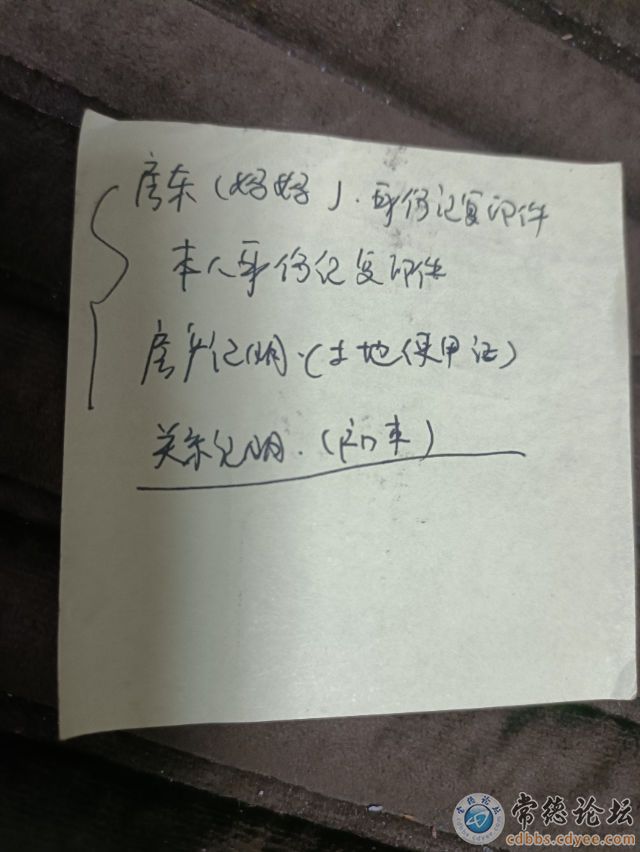 房东（）.身份证复印件
本人身份证复印件
房产证明.（土地使用证）
关系证明.（户口本）
常德论坛
cdbbs.cdyee.com